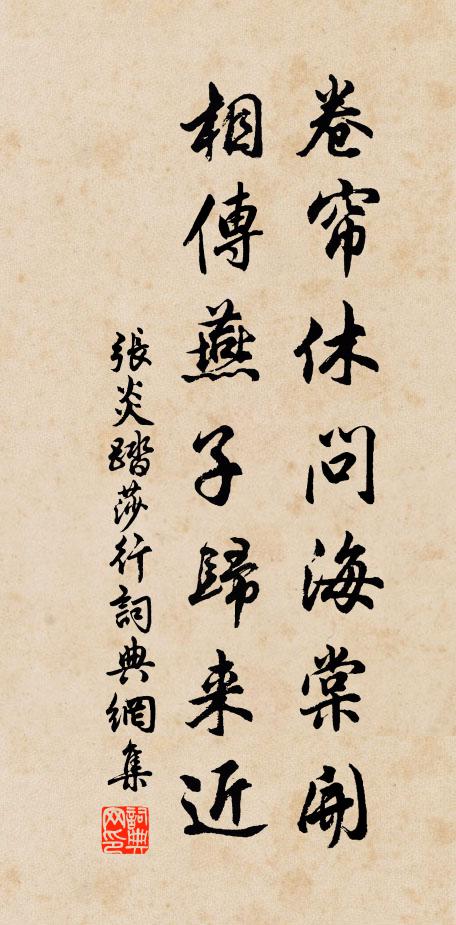 卷帘休問海棠開
相傳燕子歸来近
張炎踏莎行詞典網集
詞典网印